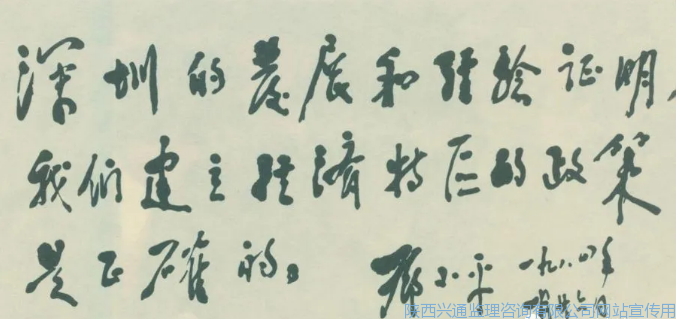 深圳的发展和经验证明，
我们建立经济特区的政策
是正确的。
邓小平 一九八四年
一月廿六日
陕西兴通监理咨询有限公司网站宣传用